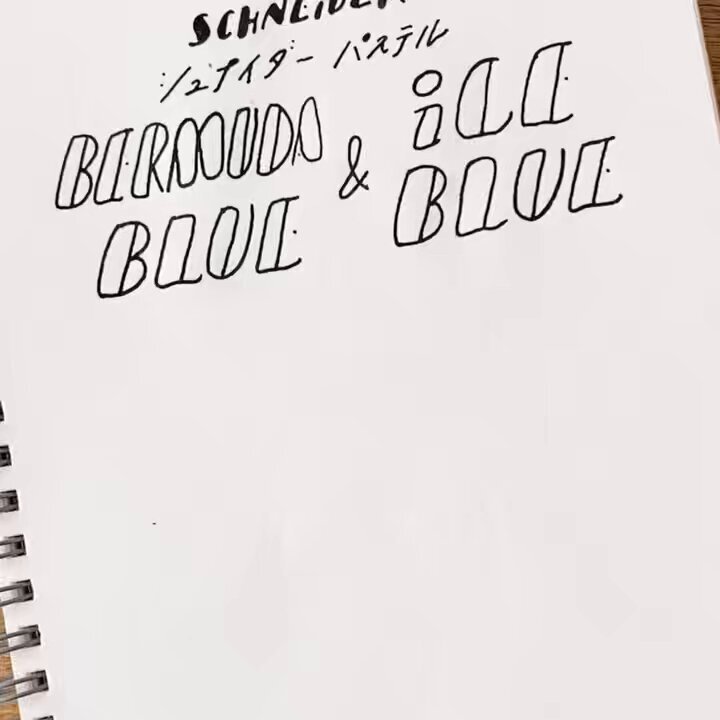 SCHNEIDER
シュナイダー パステル
BERMUDA
BLUE
&
iCE
BLUE